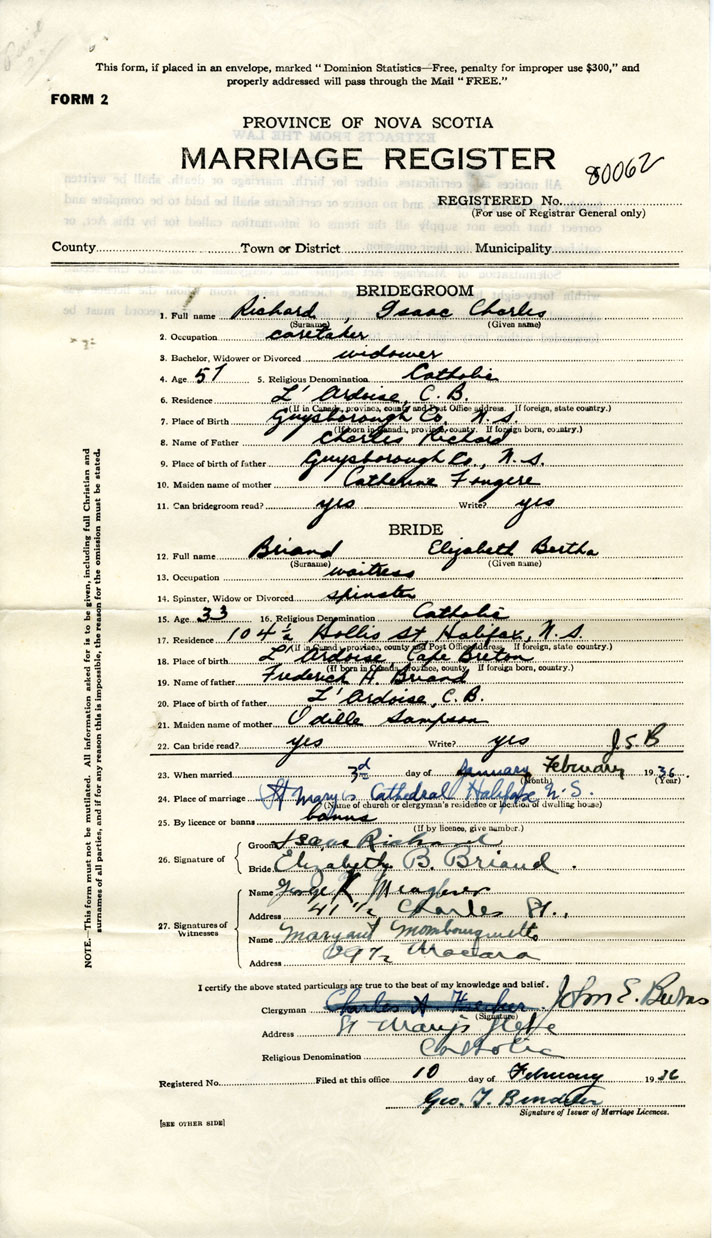 This form, if placed in an envelope, marked "Dominion Statistics—Free, penalty for improper use $300," and
properly addressed will pass through the Mail "FREE."
FORM 2
PROVINCE OF NOVA SCOTIA
MARRIAGE REGISTER
80062
REGISTERED No.
(For use of Registrar General only)
County Town or District Municipality
BRIDEGROOM
1. Full name Richard, Isaac Charles
(Surname) (Given name)
2. Occupation caretaker
3. Bachelor, Widower or Divorced widower
4. Age 57 5. Religious Denomination Catholic
6. Residence L'Ardoise, C.B.
(If in Canada, province, county and Post Office address. If foreign, state country.)
7. Place of Birth Guysborough Co., N.S.
(If born in Canada, province, county. If foreign born, country.)
8. Name of Father Charles Richard
9. Place of birth of father Guysborough Co., N.S.
10. Maiden name of mother Catherine Fougere
11. Can bridegroom read? yes Write? yes
BRIDE
12. Full name Briand Elizabeth Bertha
(Surname) (Given name)
13. Occupation waitress
14. Spinster, Widow or Divorced spinster
15. Age 33 16. Religious Denomination Catholic
17. Residence 104½ Hollis St Halifax, N.S.
(If in Canada, province, county and Post Office address. If foreign, state country.)
18. Place of birth L'Ardoise Cape Breton
(If born in Canada, province, county. If foreign born, country.)
19. Name of father Frederick H. Briand
20. Place of birth of father L'Ardoise, C.B.
21. Maiden name of mother Odille Sampson
22. Can bride read? yes Write? yes J.S.B
23. When married 3rd day of January February 1936.
(Month) (Year)
24. Place of marriage St Mary's Cathedral Halifax N.S.
(Name of church or clergyman's residence or location of dwelling house)
25. By licence or banns banns
(If by licence, give number.)
26. Signature of Groom Isaac Richard
Bride Elizabeth B. Briand.
27. Signatures of Witnesses
Name K. Meagher
Address 41½ Charles St.,
Name Margaret Mombourquette
Address
I certify the above stated particulars are true to the best of my knowledge and belief.
Clergyman Charles A John E. Burns
(Signature)
Address St Mary's
Religious Denomination Catholic
Registered No. Filed at this office 10 day of February 1936
Geo. T.
Signature of Issuer of Marriage Licences.
[SEE OTHER SIDE]
NOTE.—This form must not be mutilated. All information asked for is to be given, including full Christian and
surnames of all parties, and if for any reason this is impossible, the reason for the omission must be stated.